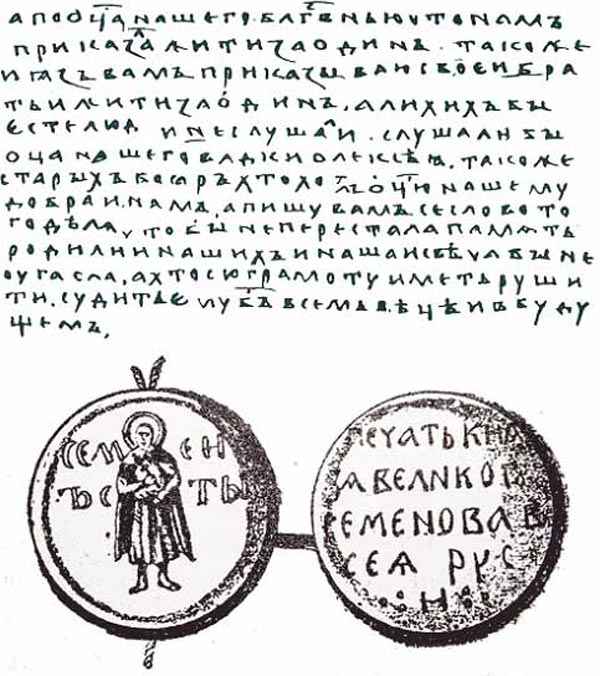 А ПО ОЦА НАШЕГО БЛАГВНЬЮ ЧТО НАМЪ
ПРИКАЗАЛ ЖИТИ ЗА ОДИНЪ . ТАКОЖЕ
И ЯЗЪ ВАМЪ ПРИКАЗЫВАЮ СВОЕИ БРА
ТЬИ ЖИТИ ЗА ОДИНЪ . А ЛИХИХЪ БЫ
ЕСТЕ ЛЮД И НЕ СЛУШАЛИ . СЛУШАЛИ БЫ
ОЦА НАШЕГО ВЛДКИ ОЛЕКСѢЯ . ТАКОЖЕ
СТАРЫХЪ БОЯРЪ ХТО ХО ОЦЮ НАШЕМУ
ДОБРА И НАМЪ . А ПИШУ ВАМЪ СЕ СЛОВО ТО
ГО ДѢЛА ЧТО БЫ НЕ ПЕРЕСТАЛА ПАМЯТЬ
РОДИЛИИ НАШИХЪ И НАША И СВѢЧА БЫ НЕ
ОУГАСЛА . А ХТО СЮ ГРАМОТУ ИМЕТЬ РУШИ
ТИ . СУДИТЬ ЕМУ БЪ В СЕМЬ ВѢЦѢ И В БУДУ
ЩЕМЬ .
СЕМ ЕН
ЪС ТЫ
ПЕЧАТЬ КНѦ
А ВЕЛИКОГ
СЕМЕНОВА В
СЕѦ РУС
И